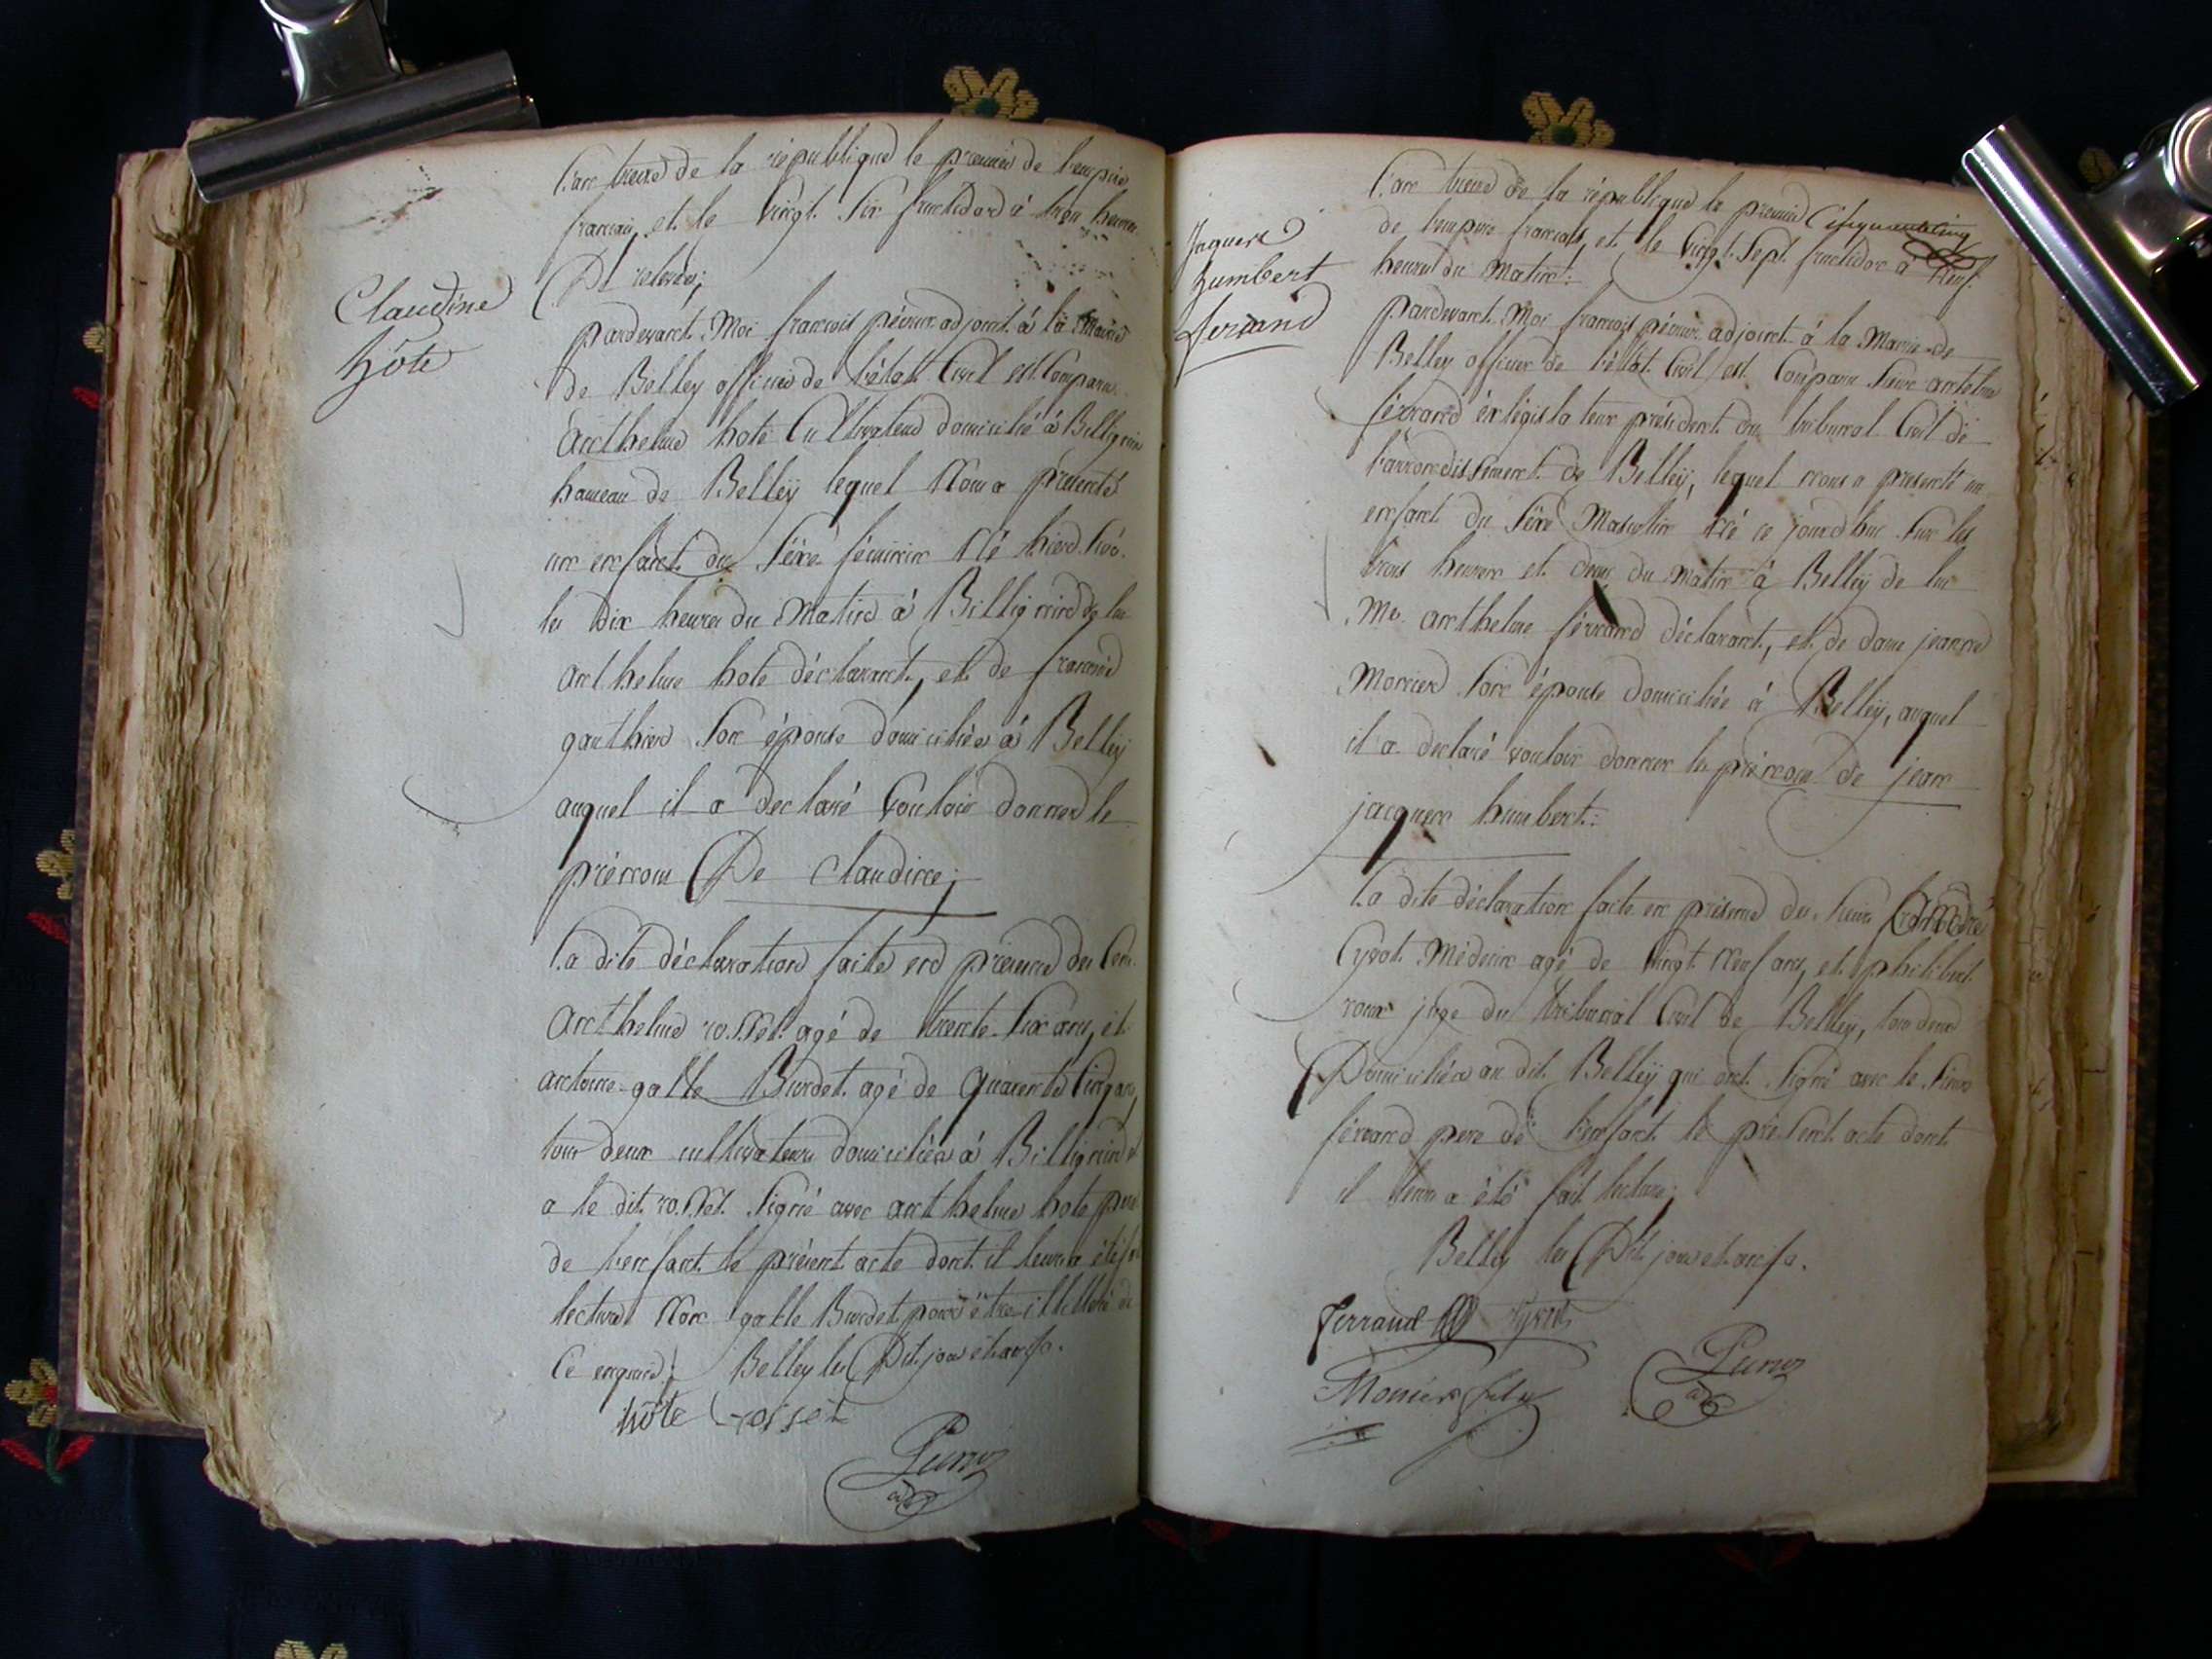 Claudine
hôte
l'an treize de la république le premier de l'empire
francais et le vingt six fructidor à trois heures
De relevée;
pardevant Moi francois péciur adjoint à la Mairie
de Belley officier de l'état Civil est Comparu
anthelme hote Cultivateur domicilié à Billignin
hameau de Belleÿ lequel Nous a présenté
un enfant du Séxe féminin Né hier Sur
les dix heures du Matin à Billignin de lui
anthelme hote déclarant, et de francoise
gauthier Son épouse domiciliée à Belleÿ
auquel il a declaré Vouloir donner le
prénom De claudine;
la dite déclaration faite en présence des
anthelme rosset agé de trente Six ans, et
antoine galle Burdet agé de quarente Cinq ans,
tous deux cultivateurs domiciliés à Billignin et
a le dit rosset Signé avec anthelme hote pere
de l'enfant le présent acte dont il leur a été fait
lecture Non galle Burdet pour être illettéré de
Ce enquis; Belley les Dit jour et an
hôte rosset
Jaques
humbert
ferrand
l'an treize de la république le premier
de l'empire francais, et le Vingt Sept fructidor à Neuf
heures du Matin:
pardevant Moi francois péciur adjoint à la Mairie de
Belley officier de l'état Civil est Comparu Sieur antelme
férrand éx législateur président du tribunal Civil de
l'arrondissement de Belleÿ, lequel nous a presenté un
enfant du Séxe Masculin Né ce jourdhui Sur les
trois heures et demi du Matin à Belleÿ de lui
Mr. anthelme férrand déclarant, et de dame jeanne
Monier Son épouse domiciliée à Belleÿ, auquel
il a declaré vouloir donner les prénoms de jean
jacques humbert:
la dite déclaration faite en présence des Sieurs
Cyvot Médecin agé de Vingt Neuf ans, et philibert
roux juge du tribunal Civil de Belleÿ, tous deux
Domiciliés au dit Belleÿ qui ont Signé avec le Sieur
férrand pere de l'enfant le présent acte dont
il leur a été fait lecture;
Belley les Dit jour et an
ferrand Cyvot
Monier